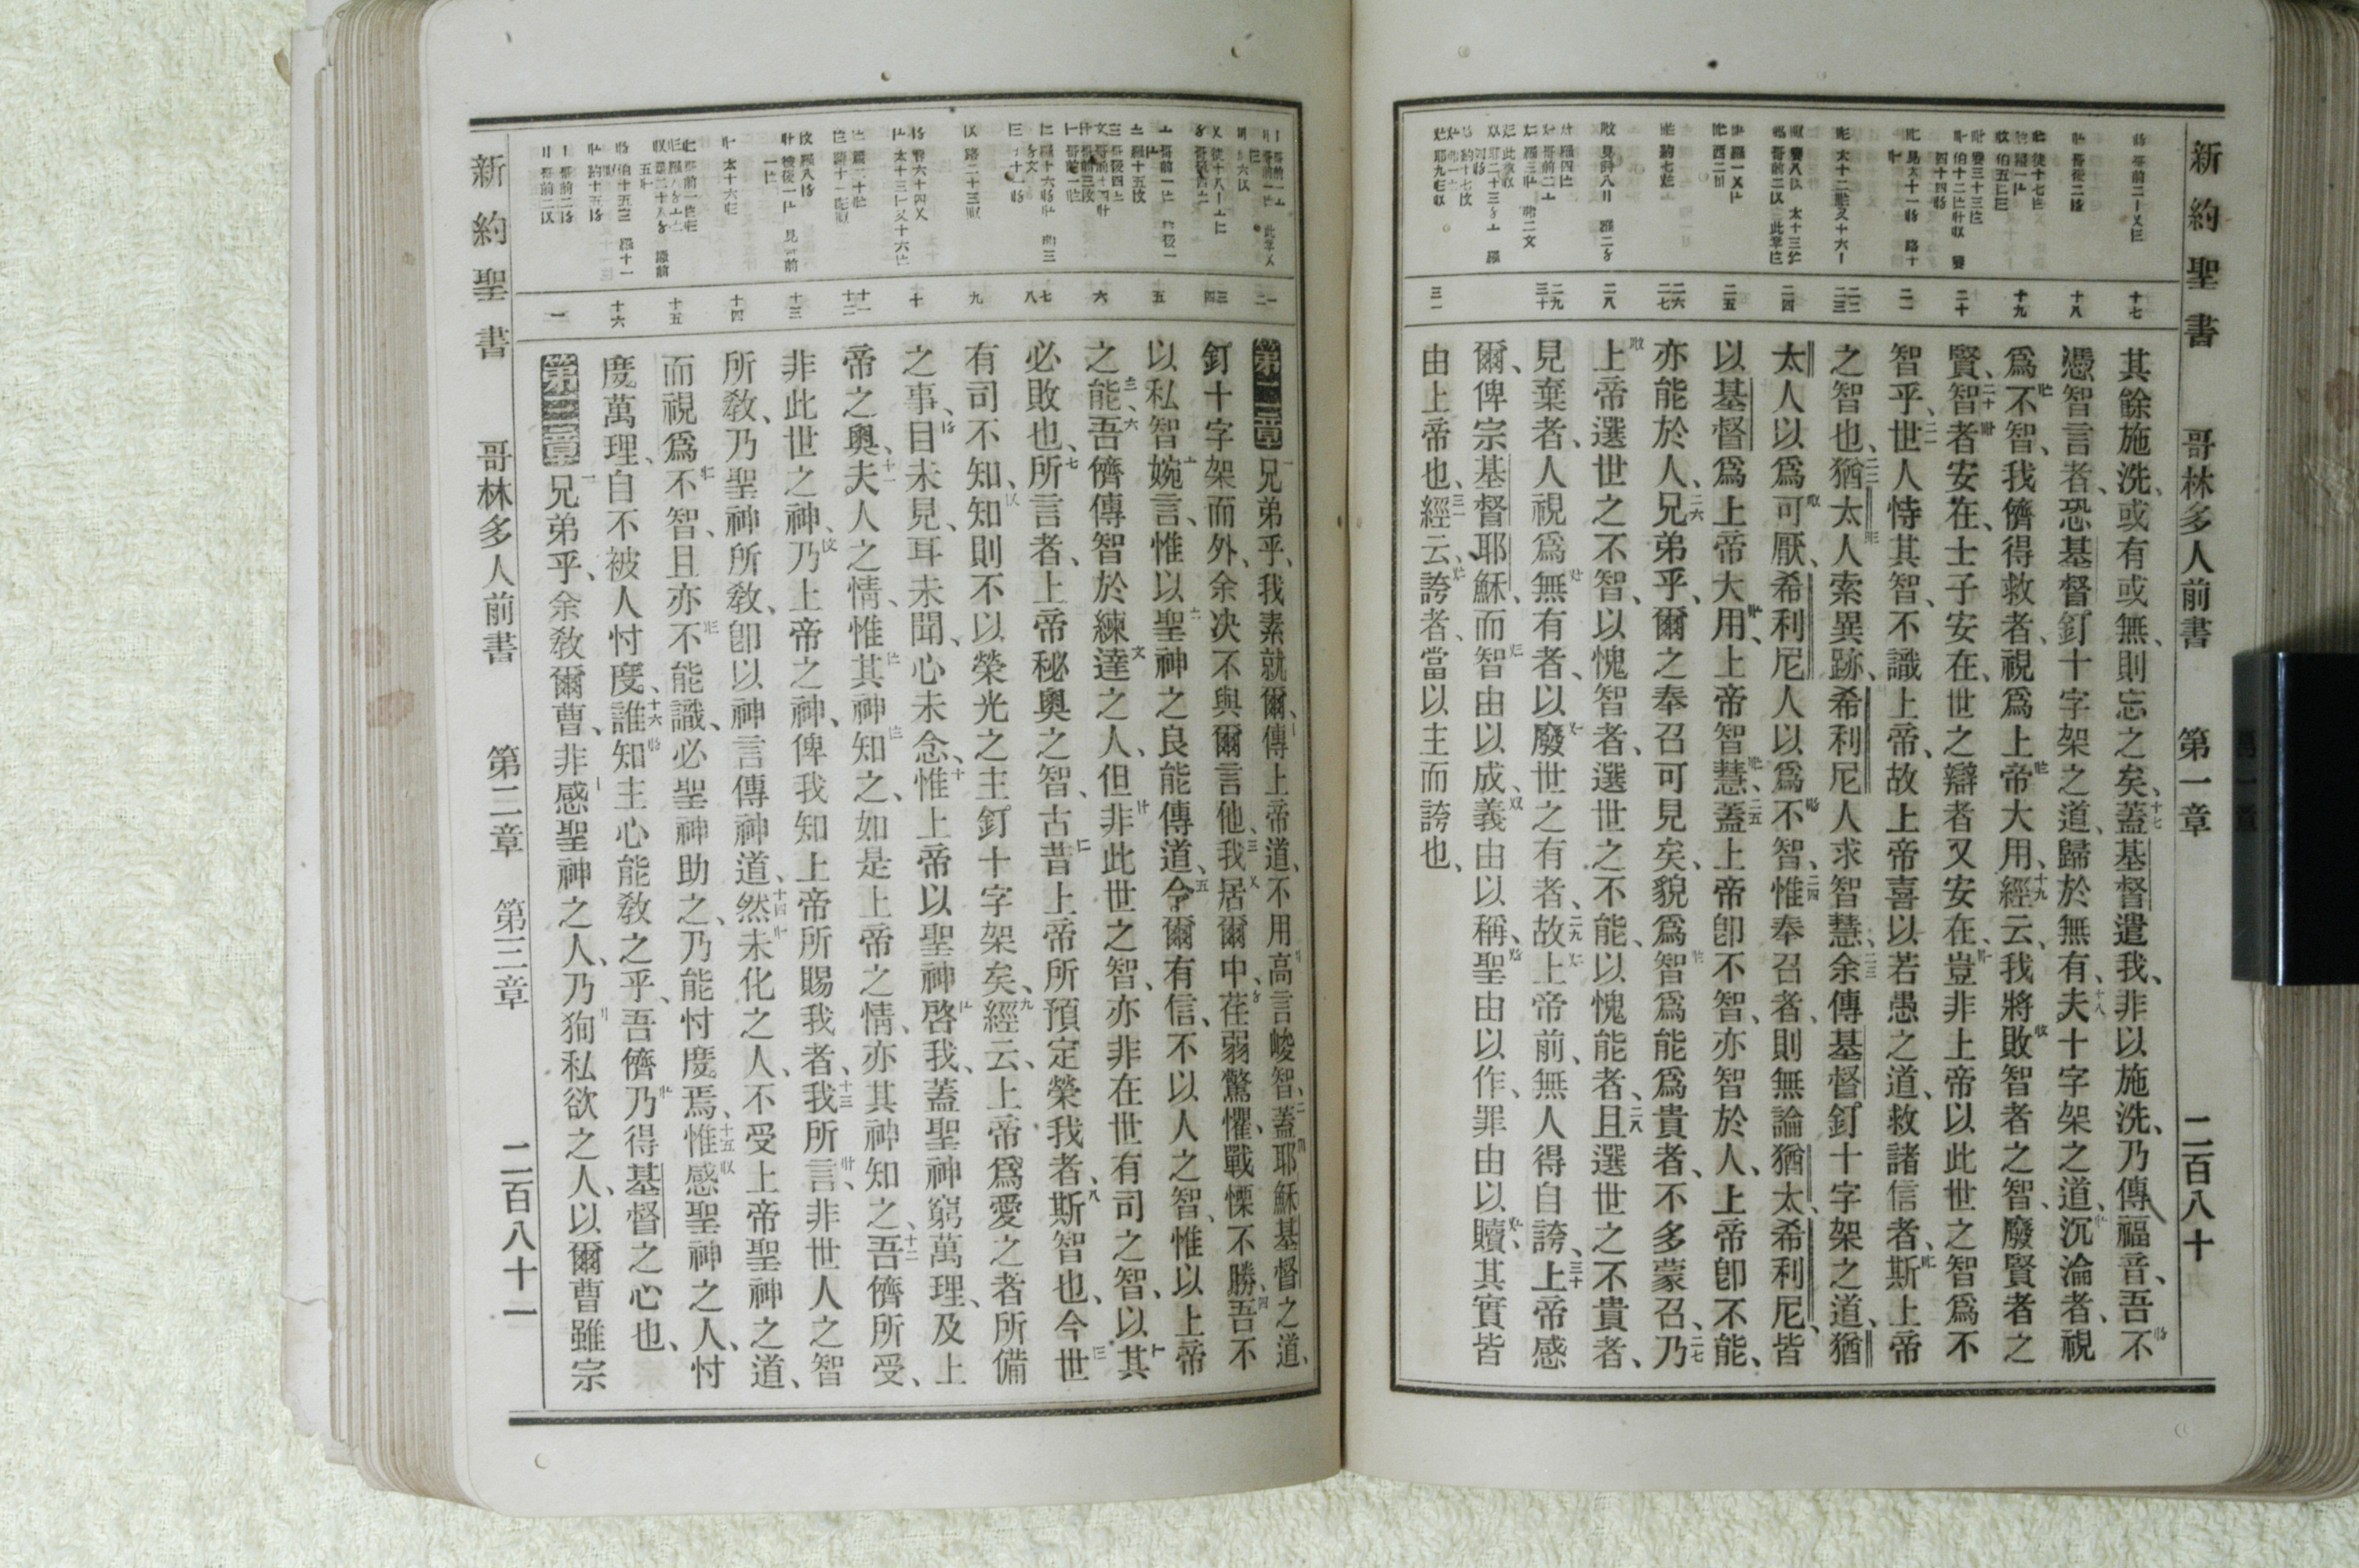 新約聖書 哥林多人前書 第一章 二百八十
十七
十八
十九
二十
二一
二二
二三
二四
二五
二六
二七
二八
二九
三十
三一
其餘施洗、或有或無、則忘之矣、十七蓋基督遣我、非以施洗、乃傳福音、吾不
憑智言者、恐基督釘十字架之道、歸於無有、十八夫十字架之道、沉淪者、視
爲不智、我儕得救者、視爲上帝大用、十九經云、我將敗智者之智、廢賢者之
賢、二十智者安在、士子安在、世之辯者又安在、豈非上帝以此世之智爲不
智乎、二一世人恃其智、不識上帝、故上帝喜以若愚之道、救諸信者、斯上帝
之智也、二二猶太人索異跡、希利尼人求智慧、二三余傳基督釘十字架之道、猶
太人以爲可厭、希利尼人以爲不智、二四惟奉召者、則無論猶太、希利尼、皆
以基督爲上帝大用、上帝智慧、二五蓋上帝卽不智、亦智於人、上帝卽不能、
亦能於人、二六兄弟乎、爾之奉召可見矣、貌爲智爲能爲貴者、不多蒙召、二七乃
上帝選世之不智、以愧智者、選世之不能、以愧能者、二八且選世之不貴者、
見棄者、人視爲無有者、以廢世之有者、二九故上帝前、無人得自誇、三十上帝感
爾、俾宗基督耶穌、而智由以成、義由以稱、聖由以作、罪由以贖、其實皆
由上帝也、三一經云、誇者、當以主而誇也、
一
二
三
四
五
六
七
八
九
十
十一
十二
十三
十四
十五
十六
一
第二章 一兄弟乎、我素就爾、傳上帝道、不用高言峻智、二蓋耶穌基督之道、
釘十字架而外、余决不與爾言他、三我居爾中、荏弱驚懼、戰慄不勝、四吾不
以私智婉言、惟以聖神之良能傳道、五令爾有信、不以人之智、惟以上帝
之能、六吾儕傳智於練達之人、但非此世之智、亦非在世有司之智、以其
必敗也、七所言者、上帝秘奧之智、古昔上帝所預定榮我者、八斯智也、今世
有司不知、知則不以榮光之主釘十字架矣、九經云、上帝爲愛之者所備
之事、目未見、耳未聞、心未念、十惟上帝以聖神啓我、蓋聖神窮萬理、及上
帝之奧、十一夫人之情、惟其神知之、如是上帝之情、亦其神知之、十二吾儕所受、
非此世之神、乃上帝之神、俾我知上帝所賜我者、十三我所言、非世人之智
所敎、乃聖神所敎、卽以神言傳神道、十四然未化之人、不受上帝聖神之道、
而視爲不智、且亦不能識、必聖神助之、乃能忖度焉、十五惟感聖神之人、忖
度萬理、自不被人忖度、十六誰知主心能敎之乎、吾儕乃得基督之心也、
第三章 一兄弟乎、余敎爾曹、非感聖神之人、乃狥私欲之人、以爾曹雖宗
新約聖書 哥林多人前書 第二章 第三章 二百八十一